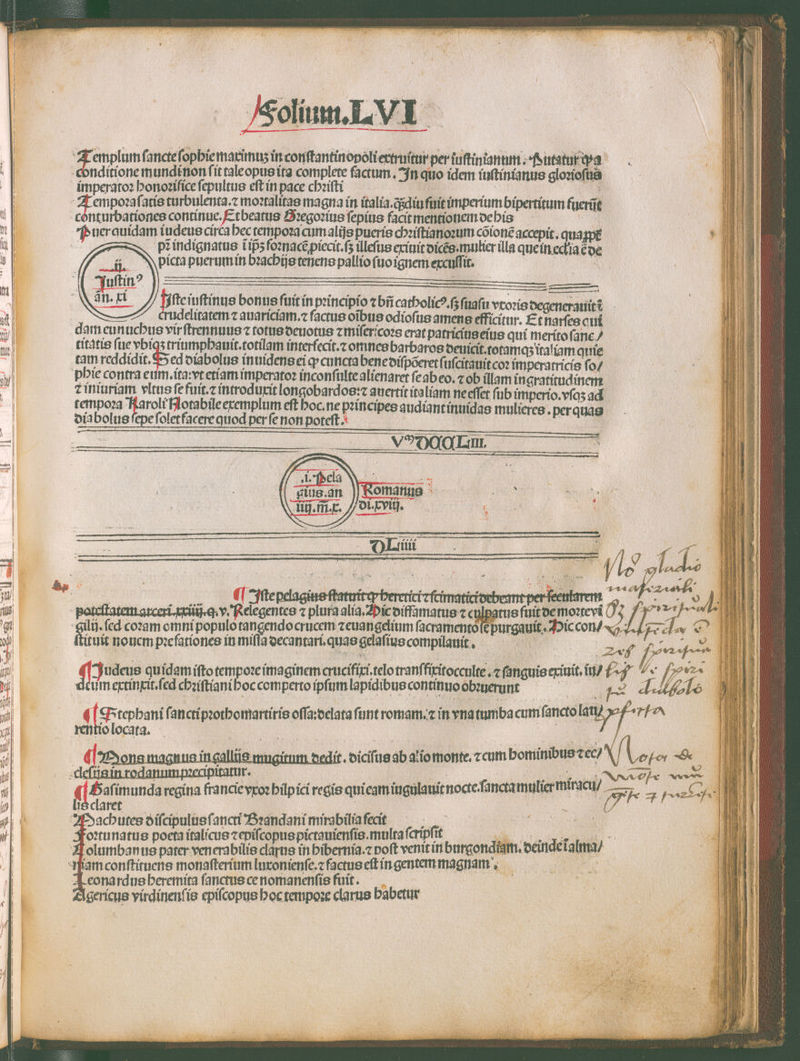 Folium.LVI
Templum sancte sophie maximuz in constantinopoli extruitur per iustinianum. Putatur qꝫ a
conditione mundi non sit tale opus ita complete factum. In quo idem iustinianus gloriosus
imperator honorifice sepultus est in pace christi
Tempora satis turbulenta.⁊ mortalitas magna in italia.qꝫdiu fuit imperium bipertitum fuerūt
conturbationes continue. Et beatus Gregorius sepius facit mentionem de his
Puer quidam iudeus circa hec tempora cum alijs pueris christianorum cōionē accepit. qua ꝓpt̄
pr̄ indignatus ī ip̄ꝫ fornacē ꝓiecit.sꝫ illesus exiuit dicēs.mulier illa que in ecclia ē de
picta puerum in brachijs tenens pallio suo ignem excussit.
.ij.
Justinꝰ
an. xi
Iste iustinus bonus fuit in principio ⁊ bn̄ catholicꝰ.sꝫ suasu vxoris degenerauit ī
crudelitatem ⁊ auariciam.⁊ factus oībus odiosus amens efficitur. Et narses qui
dam eunuchus vir strennuus ⁊ totus deuotus ⁊ misericors erat patricius eius qui merito sanc/
titatis sue vbiqꝫ triumphauit.totilam interfecit.⁊ omnes barbaros deuicit.totamqꝫ italiam quie
tam reddidit. Sed diabolus inuidens ei qꝫ cuncta bene disponeret suscitauit cor imperatricis so/
phie contra eum.ita:vt etiam imperator inconsulte alienaret se ab eo.⁊ ob illam ingratitudinem
⁊ iniuriam vltus se fuit.⁊ introduxit longobardos:⁊ auertit italiam ne esset sub imperio.vsqꝫ ad
tempora Karoli Notabile exemplum est hoc.ne principes audiant inuidas mulieres. per quas
diabolus sepe solet facere quod per se non potest.
VᵐDCCLiii.
.i. Pela
gius.an
iiij.m̄.x.
Romanus
di.xviij.
DLiiii
¶ Iste pelagius statuit qꝫ heretici ⁊ scimatici debeant per secularem
potestatem arceri.xxiiij.q.v. Relegentes ⁊ plura alia. Hic diffamatus ⁊ culpatus fuit de morte vi
gilij. sed coram omni populo tangendo crucem ⁊ euangelium sacramento se purgauit. Hic con/
stituit nouem prefationes in missa decantari.quas gelasius compilauit.
No gladio
materiali
¶ Judeus quidam isto tempore imaginem crucifixi.telo transfixit occulte.⁊ sanguis exiuit.
deum extinxit.sed christiani hoc comperto ipsum lapidibus continuo obruerunt
diabolo
¶ Stephani sancti prothomartiris ossa:delata sunt romam.⁊ in vna tumba cum sancto lau/
rentio locata.
¶ Mons magnus in gallijs mugitum dedit. dicisus ab alio monte.⁊ cum hominibus ⁊ ec/
clesijs in rodanum precipitatur.
¶ Basimunda regina francie vxor hilpici regis qui eam iugulauit nocte.sancta mulier miracu/
lis claret
Machutes discipulus sancti Brandani mirabilia fecit
Fortunatus poeta italicus ⁊ episcopus pictauiensis.multa scripsit
Columbanus pater venerabilis clarus in hibernia.⁊ post venit in burgondiam.deinde ī alma/
niam constituens monasterium luxoniense.⁊ factus est in gentem magnam.
Leonardus heremita sanctus cenomanensis fuit.
Agericus virdinensis episcopus hoc tempore clarus habetur